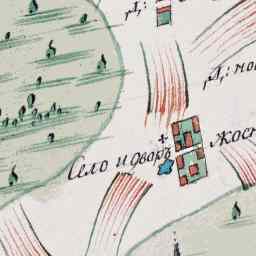 Д:
Д: но
Село и дворъ
Жост